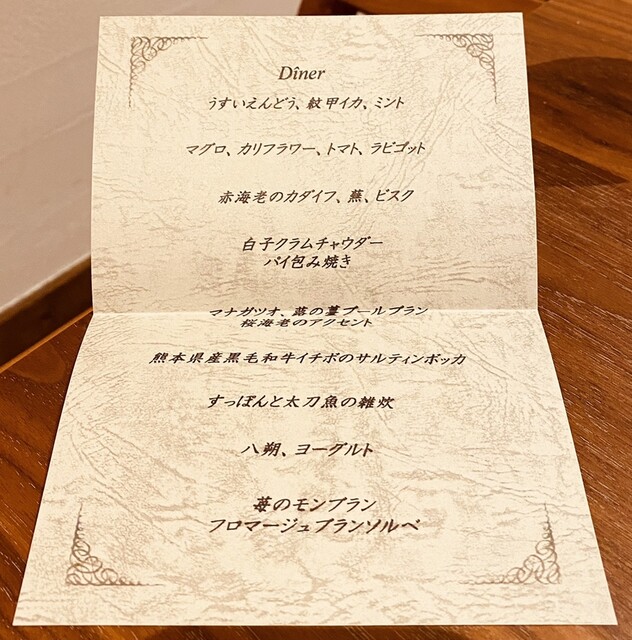 Dîner
うすいえんどう、紋甲イカ、ミント
マグロ、カリフラワー、トマト、ラビゴット
赤海老のカダイフ、蕪、ビスク
白子クラムチャウダー
パイ包み焼き
マナガツオ、蕗の薹ブールブラン
桜海老のアクセント
熊本県産黒毛和牛イチボのサルティンボッカ
すっぽんと太刀魚の雑炊
八朔、ヨーグルト
苺のモンブラン
フロマージュブランソルベ